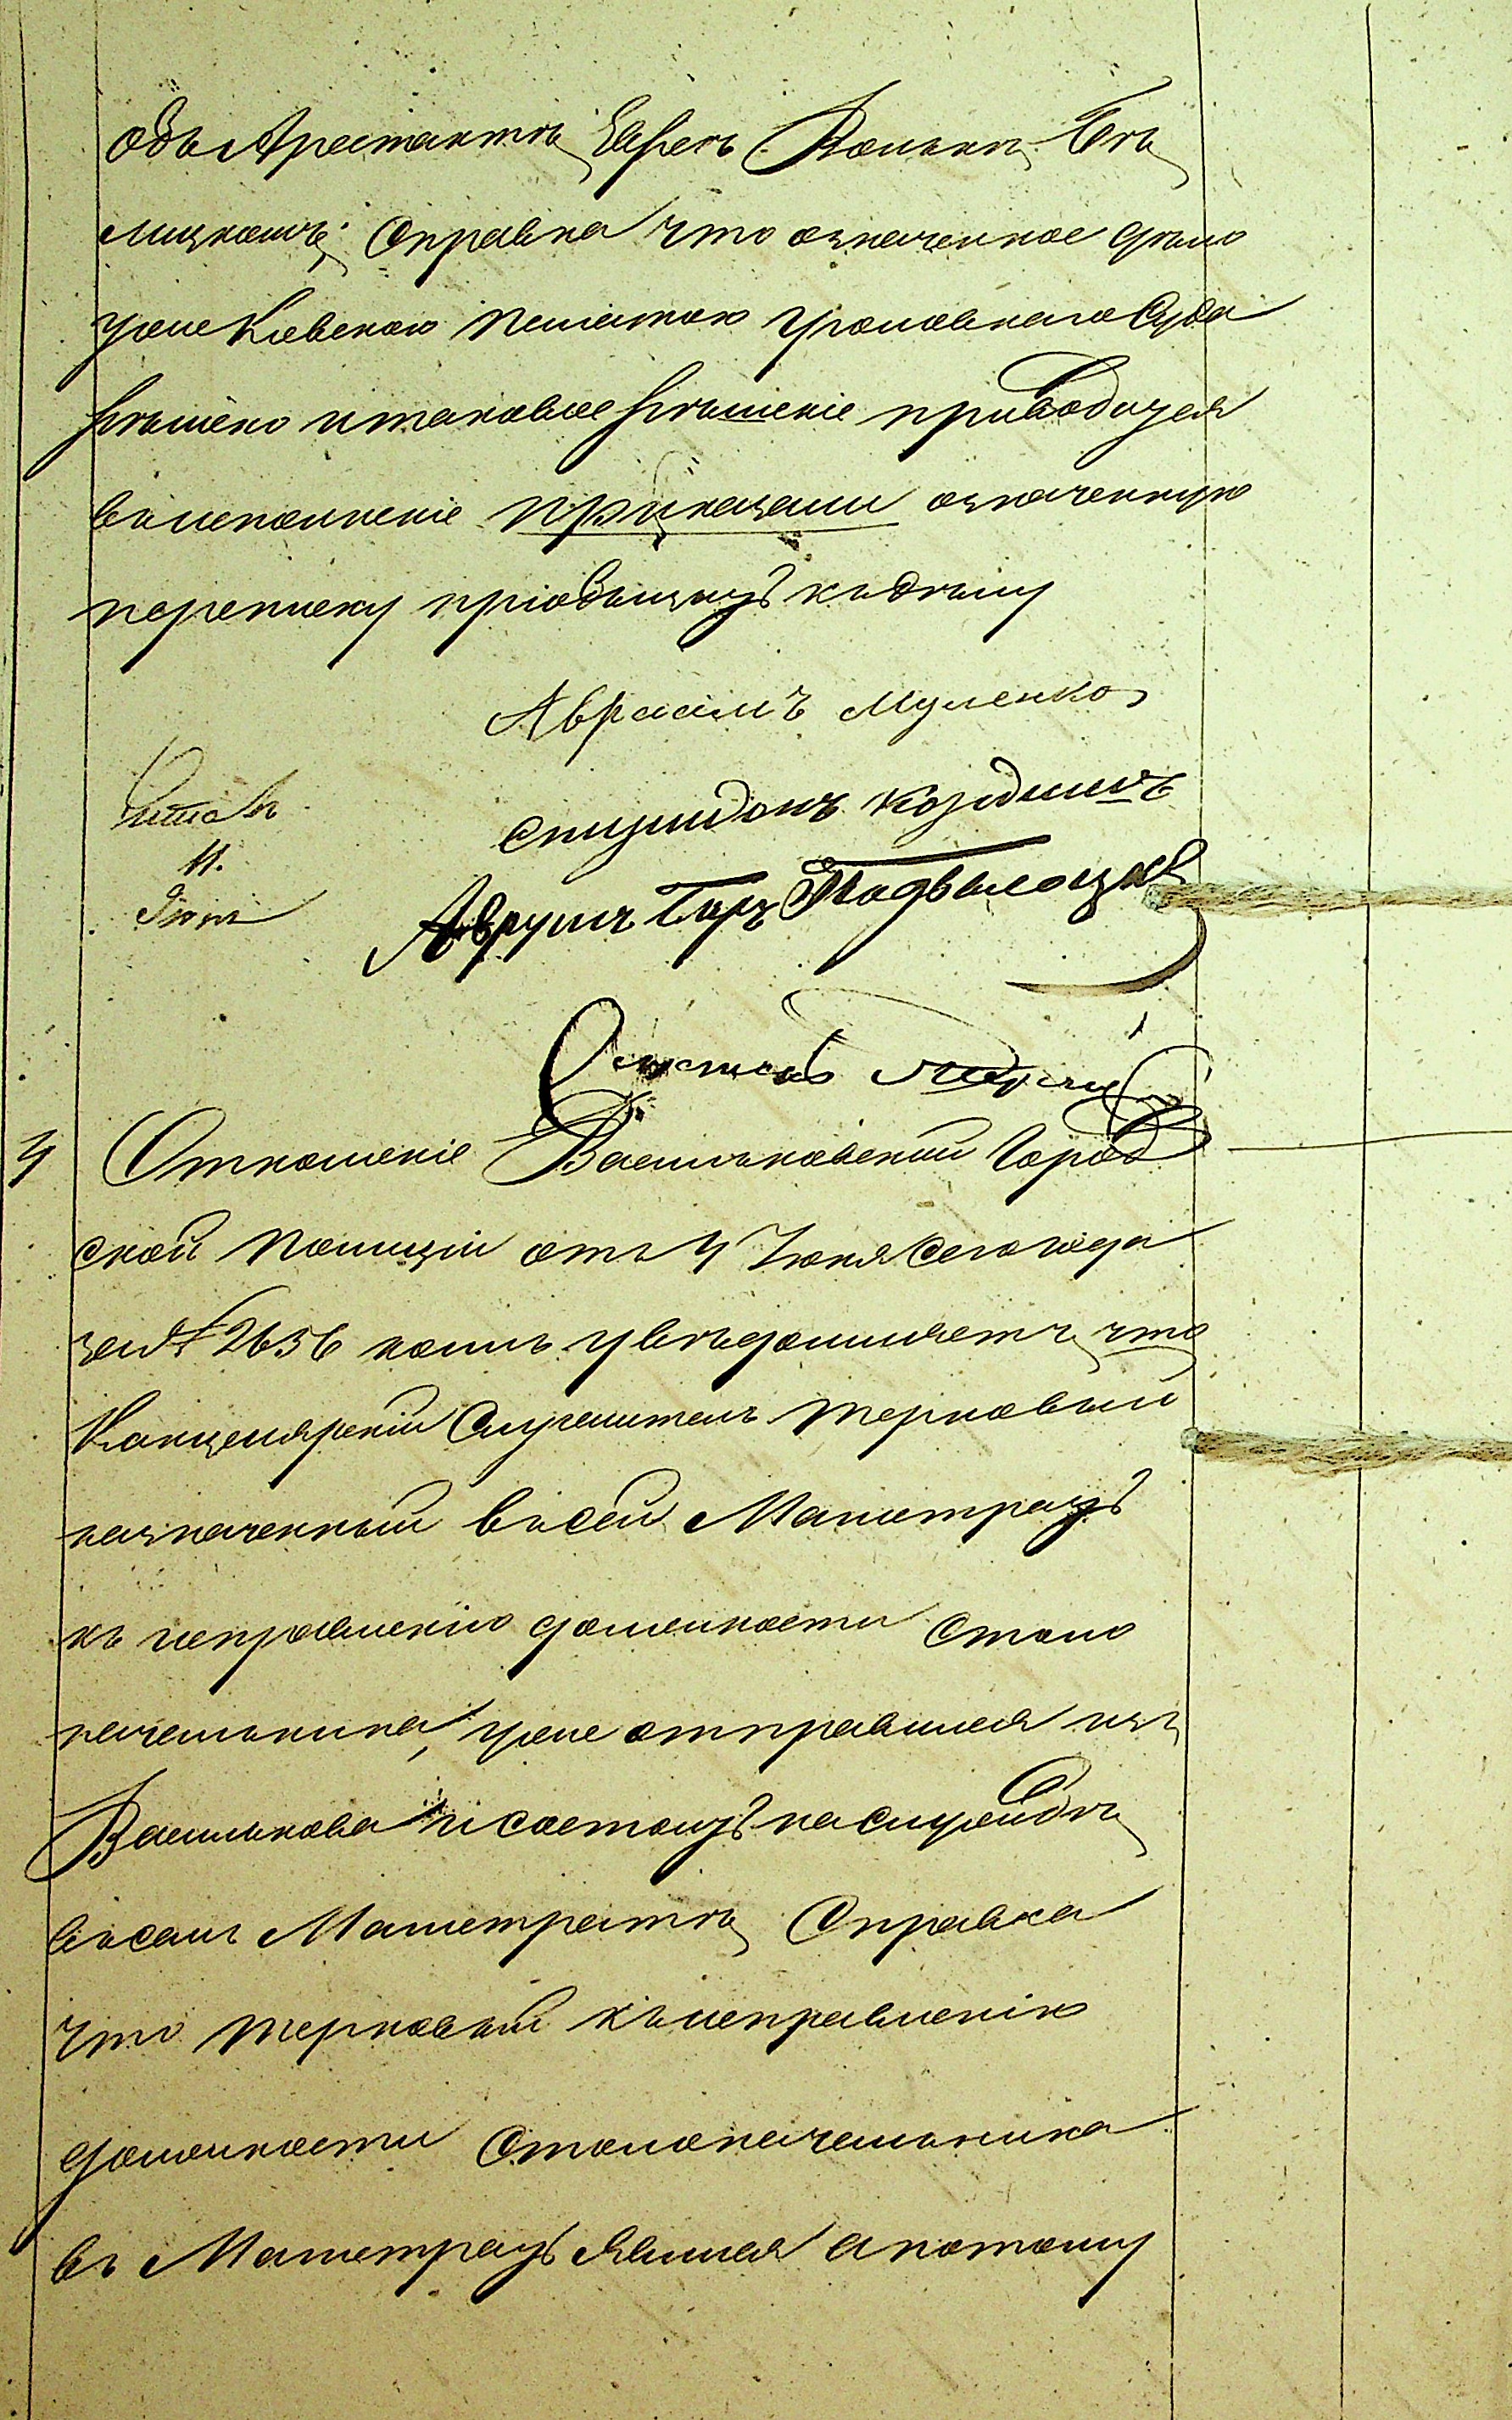 объ Арестантѣ Евреѣ
Справка что означенное дѣло
уже Кіевскою Палатою Уголовнаго Суда
рѣшено и таковое рѣшеніе приводится
въ исполненіе приказали означенную
переписку пріобщить къ дѣлу
Авраамъ Муленко
Читалъ
спиридонъ
11.
Аврумъ Герц
4 Отношеніе Васильковской Город
ской Полиціи отъ 4 Іюня Сего года
за № 2656 коимъ увѣдомляетъ что
Канцелярскій Служитель Терновый
назначенный въ сей Магистратъ
къ исправленію должности Столо
начальника, уже отправился изъ
Василькова и состоитъ на службѣ
въ семъ Магистратѣ Справка
что Терновый къ исправленію
должности Столоначальника
въ Магистратъ явился а потому